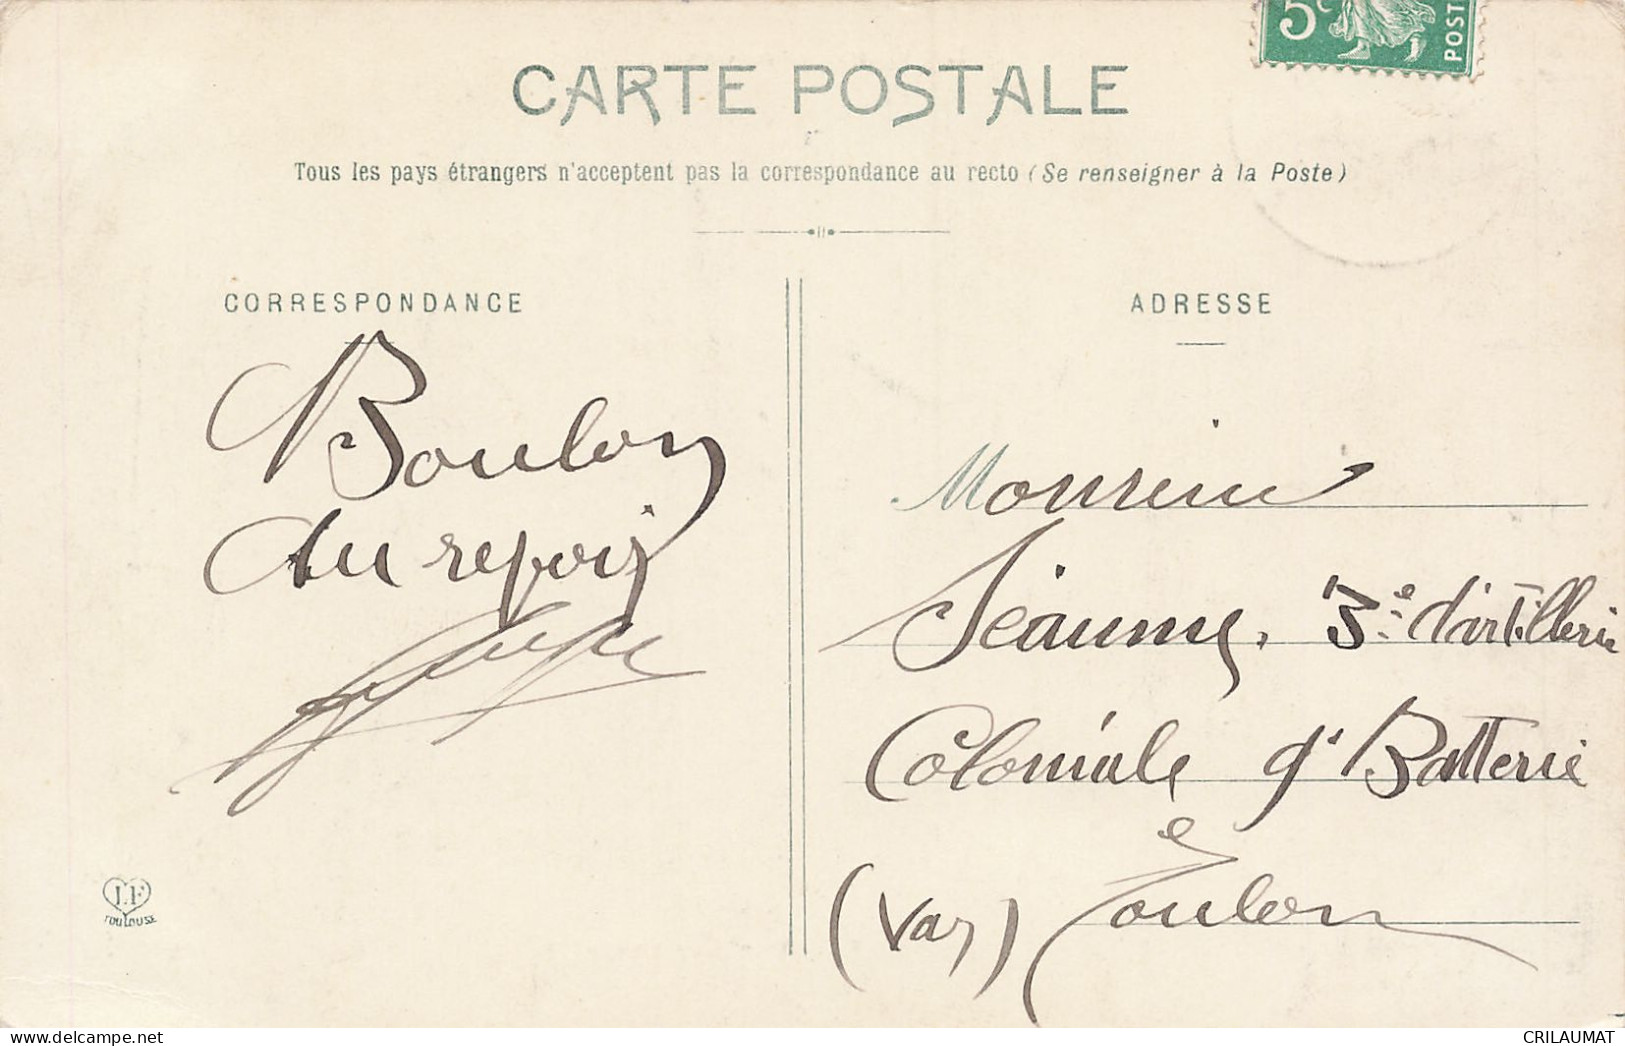 5c
POST
CARTE POSTALE
Tous les pays étrangers n'acceptent pas la correspondance au recto (Se renseigner à la Poste)
CORRESPONDANCE
Boulon
Au revoir
ADRESSE
Monsieur
Jéaume, 3e d'artillerie
Coloniale 9e Batterie
Toulon
(Var)
LF
TOULOUSE
CRILAUMAT